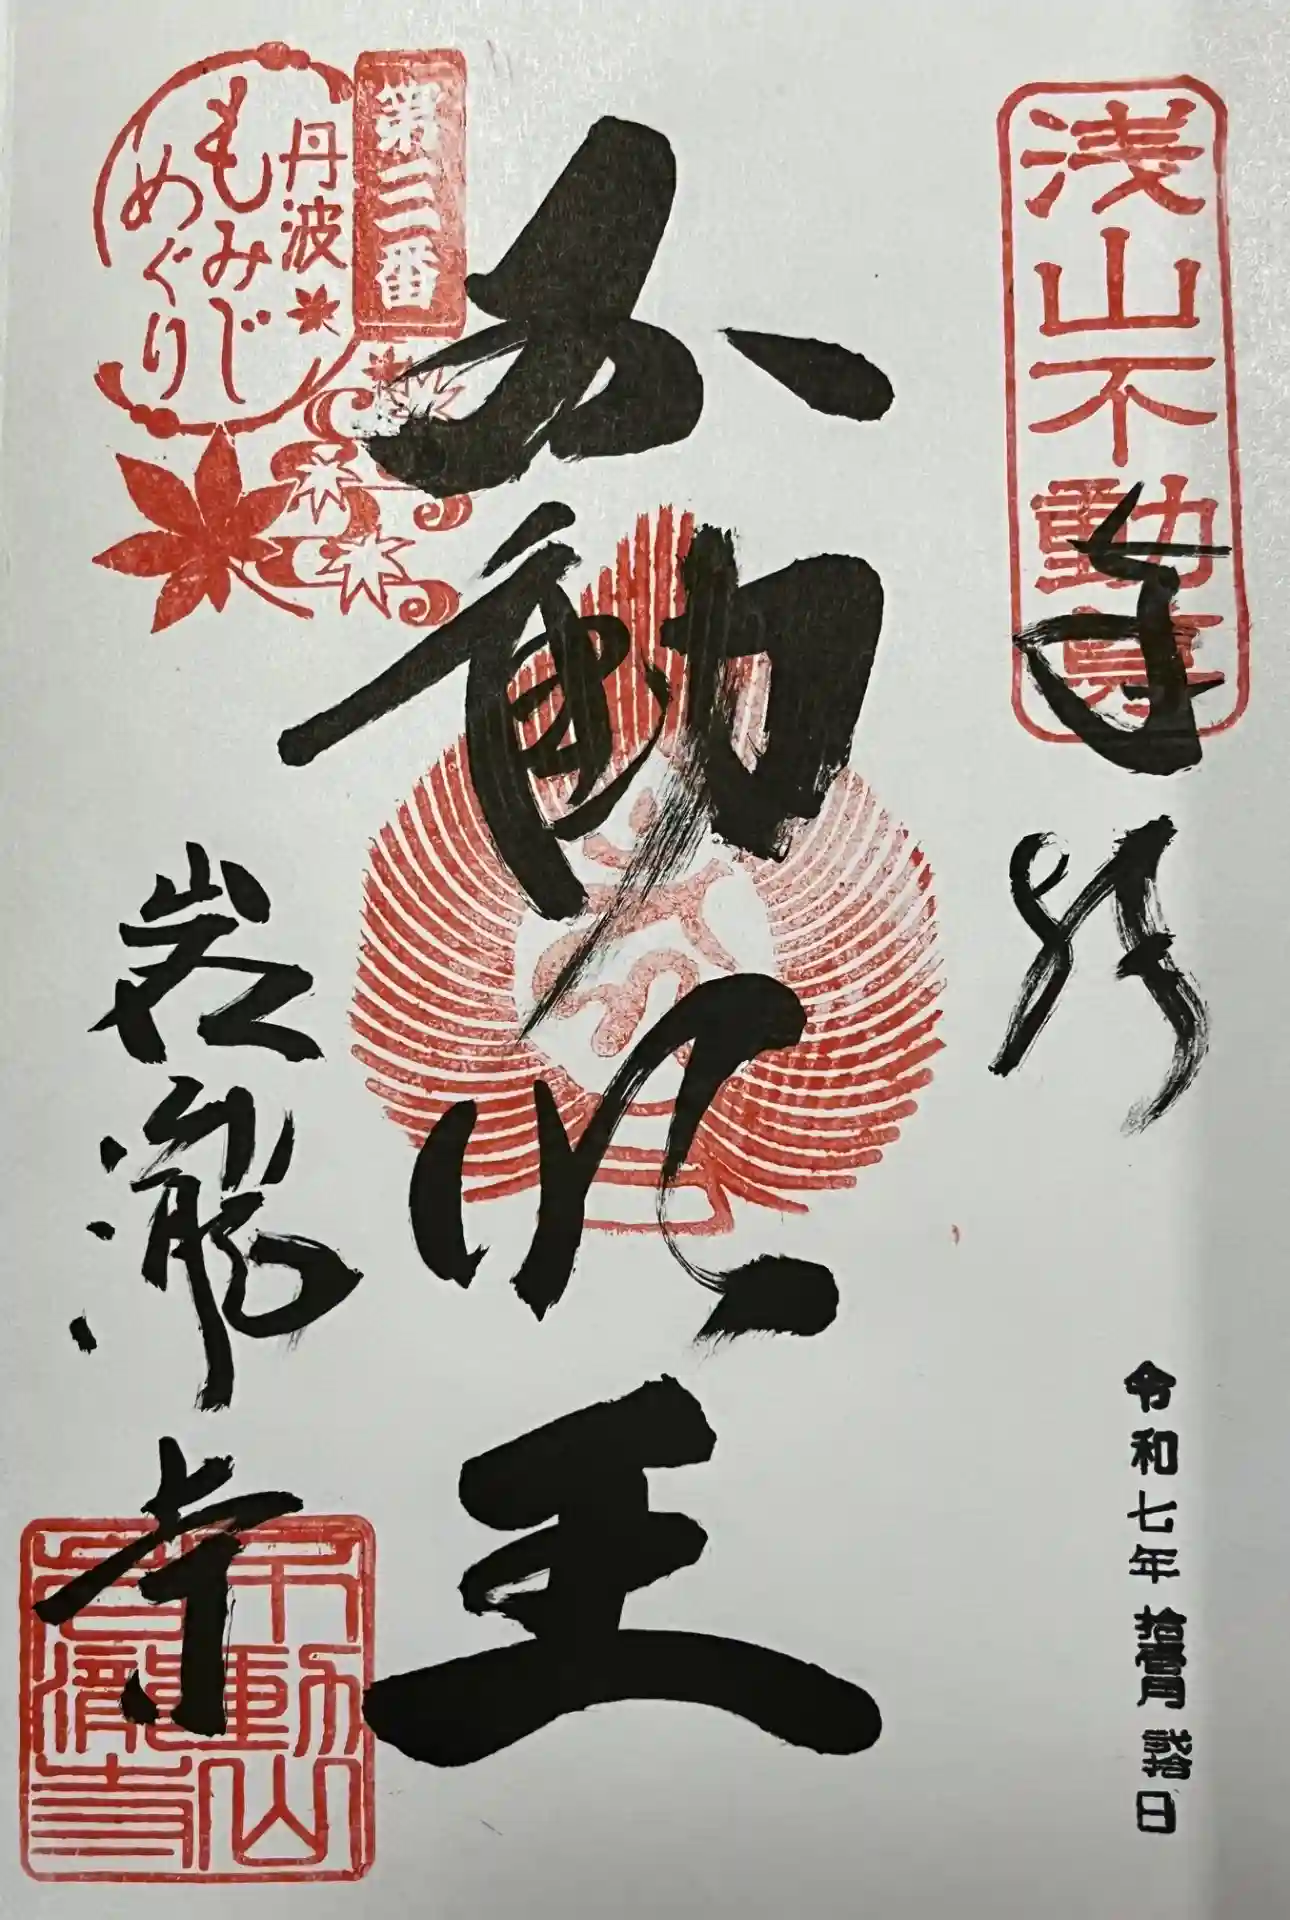 浅山不動尊
奉拝
令和七年拾壹月貳拾日
不動明王
第三番
丹波
もみじ
めぐり
岩瀧寺
不動山
岩瀧寺